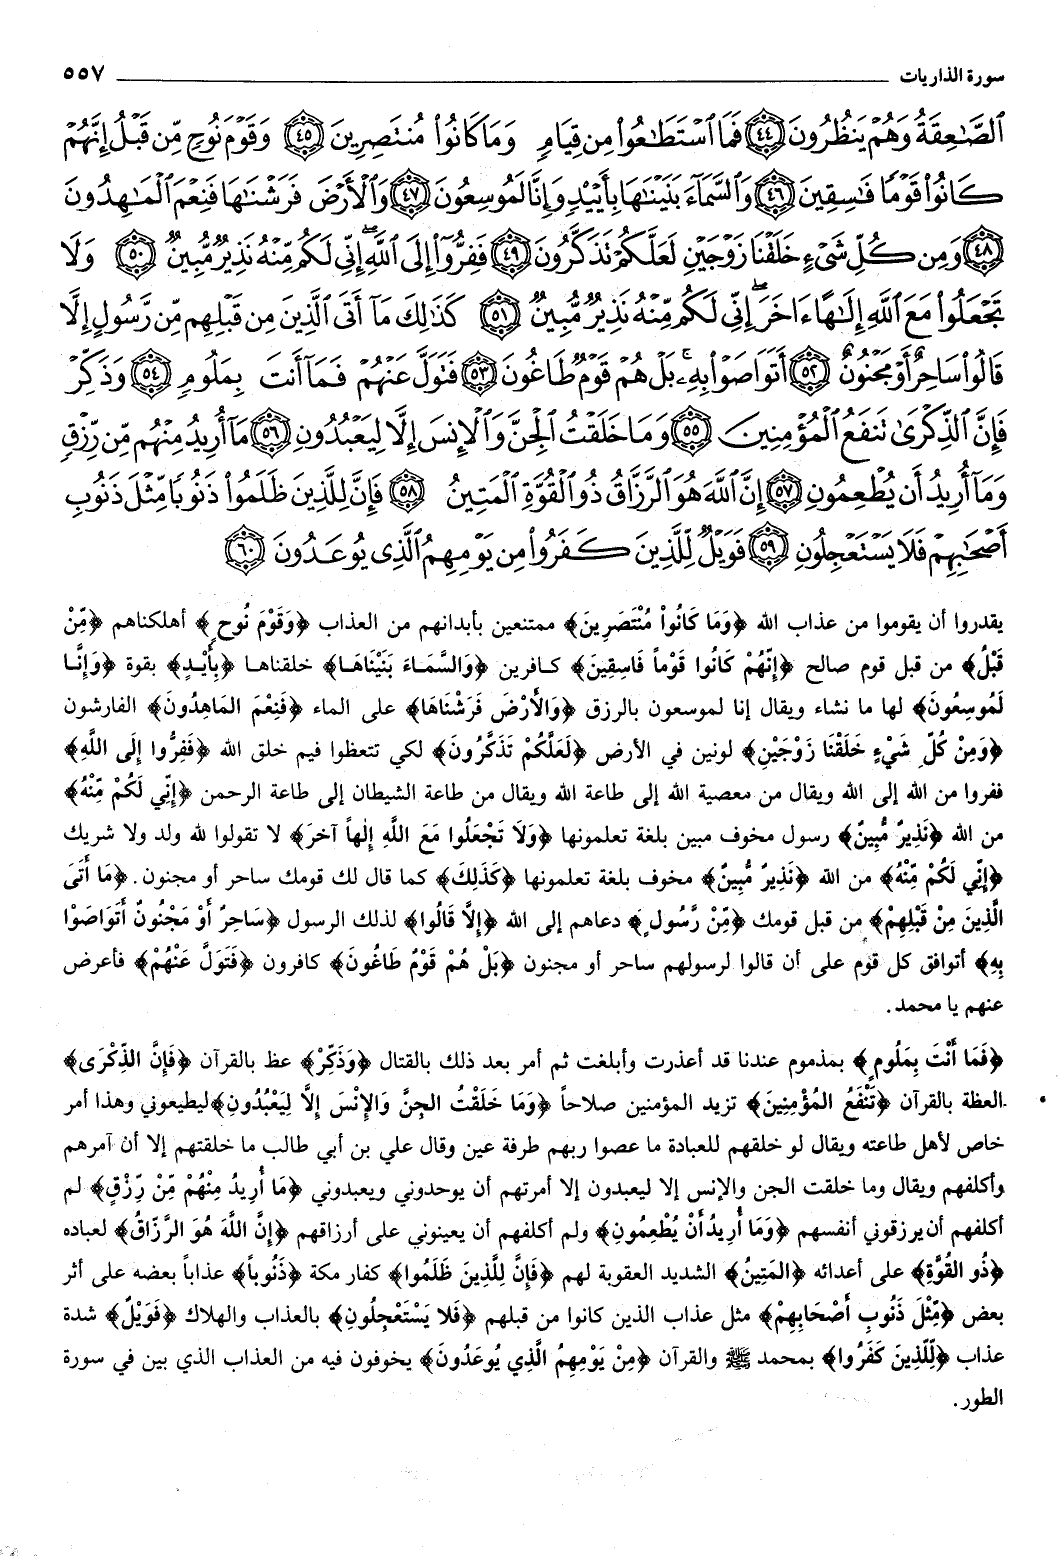 سورة الذاريات ٥٥٧
ٱلصَّٰعِقَةُ وَهُمْ يَنظُرُونَ ٤٤ فَمَا ٱسْتَطَٰعُوا۟ مِن قِيَامٍ وَمَا كَانُوا۟ مُنتَصِرِينَ ٤٥ وَقَوْمَ نُوحٍ مِّن قَبْلُ إِنَّهُمْ
كَانُوا۟ قَوْمًا فَٰسِقِينَ ٤٦ وَٱلسَّمَآءَ بَنَيْنَٰهَا بِأَيْي۟دٍ وَإِنَّا لَمُوسِعُونَ ٤٧ وَٱلْأَرْضَ فَرَشْنَٰهَا فَنِعْمَ ٱلْمَٰهِدُونَ
٤٨ وَمِن كُلِّ شَىْءٍ خَلَقْنَا زَوْجَيْنِ لَعَلَّكُمْ تَذَكَّرُونَ ٤٩ فَفِرُّوٓا۟ إِلَى ٱللَّهِ إِنِّى لَكُم مِّنْهُ نَذِيرٌ مُّبِينٌ ٥٠ وَلَا
تَجْعَلُوا۟ مَعَ ٱللَّهِ إِلَٰهًا ءَاخَرَ إِنِّى لَكُم مِّنْهُ نَذِيرٌ مُّبِينٌ ٥١ كَذَٰلِكَ مَآ أَتَى ٱلَّذِينَ مِن قَبْلِهِم مِّن رَّسُولٍ إِلَّا
قَالُوا۟ سَاحِرٌ أَوْ مَجْنُونٌ ٥٢ أَتَوَاصَوْا۟ بِهِۦ بَلْ هُمْ قَوْمٌ طَاغُونَ ٥٣ فَتَوَلَّ عَنْهُمْ فَمَآ أَنتَ بِمَلُومٍ ٥٤ وَذَكِّرْ
فَإِنَّ ٱلذِّكْرَىٰ تَنفَعُ ٱلْمُؤْمِنِينَ ٥٥ وَمَا خَلَقْتُ ٱلْجِنَّ وَٱلْإِنسَ إِلَّا لِيَعْبُدُونِ ٥٦ مَآ أُرِيدُ مِنْهُم مِّن رِّزْقٍ
وَمَآ أُرِيدُ أَن يُطْعِمُونِ ٥٧ إِنَّ ٱللَّهَ هُوَ ٱلرَّزَّاقُ ذُو ٱلْقُوَّةِ ٱلْمَتِينُ ٥٨ فَإِنَّ لِلَّذِينَ ظَلَمُوا۟ ذَنُوبًا مِّثْلَ ذَنُوبِ
أَصْحَٰبِهِمْ فَلَا يَسْتَعْجِلُونِ ٥٩ فَوَيْلٌ لِّلَّذِينَ كَفَرُوا۟ مِن يَوْمِهِمُ ٱلَّذِى يُوعَدُونَ ٦٠
يقدروا أن يقوموا من عذاب الله ﴿وَمَا كَانُواْ مُنْتَصَرِينَ﴾ ممتنعين بأبدانهم من العذاب ﴿وَقَوْمَ نُوحٍ﴾ أهلكناهم ﴿مِّنْ
قَبْلُ﴾ من قبل قوم صالح ﴿إِنَّهُمْ كَانُوا قَوْماً فَاسِقِينَ﴾ كافرين ﴿وَالسَّمَاءَ بَنَيْنَاهَا﴾ خلقناها ﴿بِأَيْـدٍ﴾ بقوة ﴿وَإِنَّـا
لَمُوسِعُونَ﴾ لها ما نشاء ويقال إنا لموسعون بالرزق ﴿وَالأَرْضَ فَرَشْنَاهَا﴾ على الماء ﴿فَنِعْمَ المَاهِدُونَ﴾ الفارشون
﴿وَمِنْ كُلِّ شَيْءٍ خَلَقْنَا زَوْجَيْنِ﴾ لونين في الأرض ﴿لَعَلَّكُمْ تَذَكَّرُونَ﴾ لكي تتعظوا فيم خلق الله ﴿فَفِرُّوا إِلَى اللَّهِ﴾
ففروا من الله إلى الله ويقال من معصية الله إلى طاعة الله ويقال من طاعة الشيطان إلى طاعة الرحمن ﴿إِنِّي لَكُمْ مِّنْهُ﴾
من الله ﴿نَذِيرٌ مُّبِينٌ﴾ رسول مخوف مبين بلغة تعلمونها ﴿وَلَا تَجْعَلُوا مَعَ اللَّهِ إِلٰهاً آخرَ﴾ لا تقولوا لله ولد ولا شريك
﴿إِنِّي لَكُمْ مِّنْهُ﴾ من الله ﴿نَذِيرٌ مُّبِينٌ﴾ مخوف بلغة تعلمونها ﴿كَذَلِكَ﴾ كما قال لك قومك ساحر أو مجنون. ﴿مَا أَتَى
الَّذِينَ مِنْ قَبْلِهِمْ﴾ من قبل قومك ﴿مِّنْ رَّسُولٍ﴾ دعاهم إلى الله ﴿إِلَّا قَالُوا﴾ لذلك الرسول ﴿سَاحِرٌ أَوْ مَجْنُونٌ أَتَوَاصَوْا
بِهِ﴾ أتوافق كل قوم على أن قالوا لرسولهم ساحر أو مجنون ﴿بَلْ هُمْ قَوْمٌ طَاغُونَ﴾ كافرون ﴿فَتَوَلَّ عَنْهُمْ﴾ فأعرض
عنهم يا محمد.
﴿فَمَا أَنْتَ بِمَلُومٍ﴾ بمذموم عندنا قد أعذرت وأبلغت ثم أمر بعد ذلك بالقتال ﴿وَذَكِّرْ﴾ عظ بالقرآن ﴿فَإِنَّ الذِّكْرَى﴾
العظة بالقرآن ﴿تَنْفَعُ المُؤْمِنِينَ﴾ تزيد المؤمنين صلاحاً ﴿وَمَا خَلَقْتُ الجِنَّ وَالإِنْسَ إِلَّا لِيَعْبُدُونِ﴾ليطيعوني وهذا أمر
خاص لأهل طاعته ويقال لو خلقهم للعبادة ما عصوا ربهم طرفة عين وقال علي بن أبي طالب ما خلقتهم إلا أن آمرهم
وأكلفهم ويقال وما خلقت الجن والإنس إلا ليعبدون إلا أمرتهم أن يوحدوني ويعبدوني ﴿مَا أُرِيدُ مِنْهُمْ مِّنْ رِّزْقٍ﴾ لم
أكلفهم أن يرزقوني أنفسهم ﴿وَمَا أُرِيدُ أَنْ يُطْعِمُونِ﴾ ولم أكلفهم أن يعينوني على أرزاقهم ﴿إِنَّ اللَّهَ هُوَ الرَّزَّاقُ﴾ لعباده
﴿ذُو القُوَّةِ﴾ على أعدائه ﴿المَتِينُ﴾ الشديد العقوبة لهم ﴿فَإِنَّ لِلَّذِينَ ظَلَمُوا﴾ كفار مكة ﴿ذَنُوباً﴾ عذاباً بعضه على أثر
بعض ﴿مِّثْلَ ذَنُوبِ أَصْحَابِهِمْ﴾ مثل عذاب الذين كانوا من قبلهم ﴿فَلا يَسْتَعْجِلُونِ﴾ بالعذاب والهلاك ﴿فَوَيْلٌ﴾ شدة
عذاب ﴿لِلَّذِينَ كَفَرُوا﴾ بمحمد ﷺ والقرآن ﴿مِنْ يَوْمِهِمُ الَّذِي يُوعَدُونَ﴾ يخوفون فيه من العذاب الذي بين في سورة
الطور.